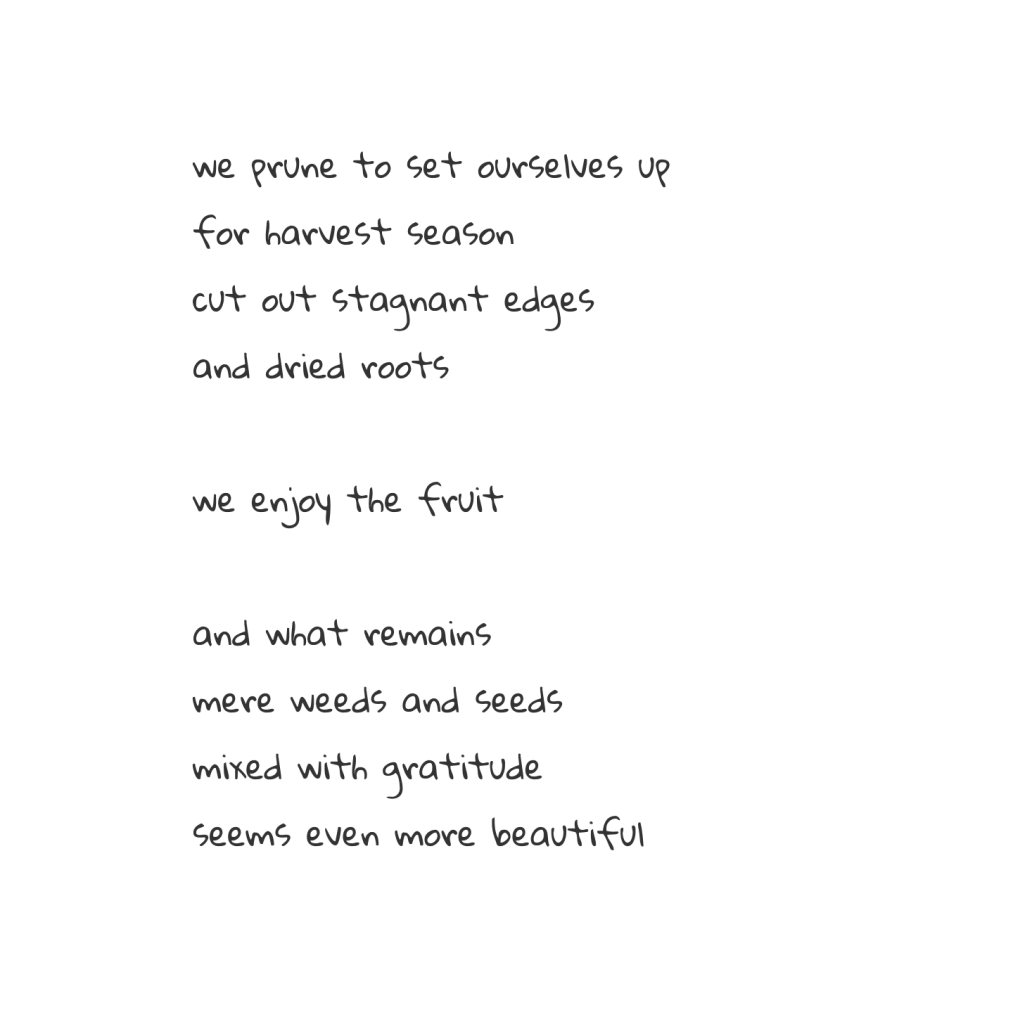 we prune to set ourselves up
for harvest season
cut out stagnant edges
and dried roots
we enjoy the fruit
and what remains
mere weeds and seeds
mixed with gratitude
seems even more beautiful